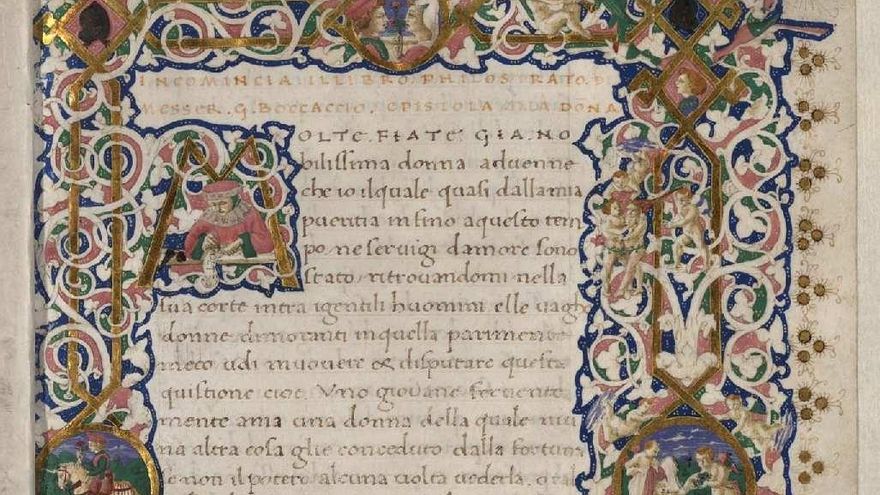 INCOMINCIA IL LIBRO PHILOSTRATO D
MESSER . G. BOCCACCIO . EPISTOLA ALLA DONA
MOLTE . FIATE . GIA . NO
bilissima donna advenne
che io il quale quasi dalla mia
pueritia infino a questo tem
po . ne servigi damore sono
stato ritrovandomi nella
sua corte intra i gentili huomini elle vagh
donne dimoranti in quella parimente
meco udi muovere & disputare questa
quistione cioe . Uno giovane fervente
mente ama una donna della quale niu
na altra cosa glie conceduto dalla fortuna
se non il potere alcuna volta vederla .